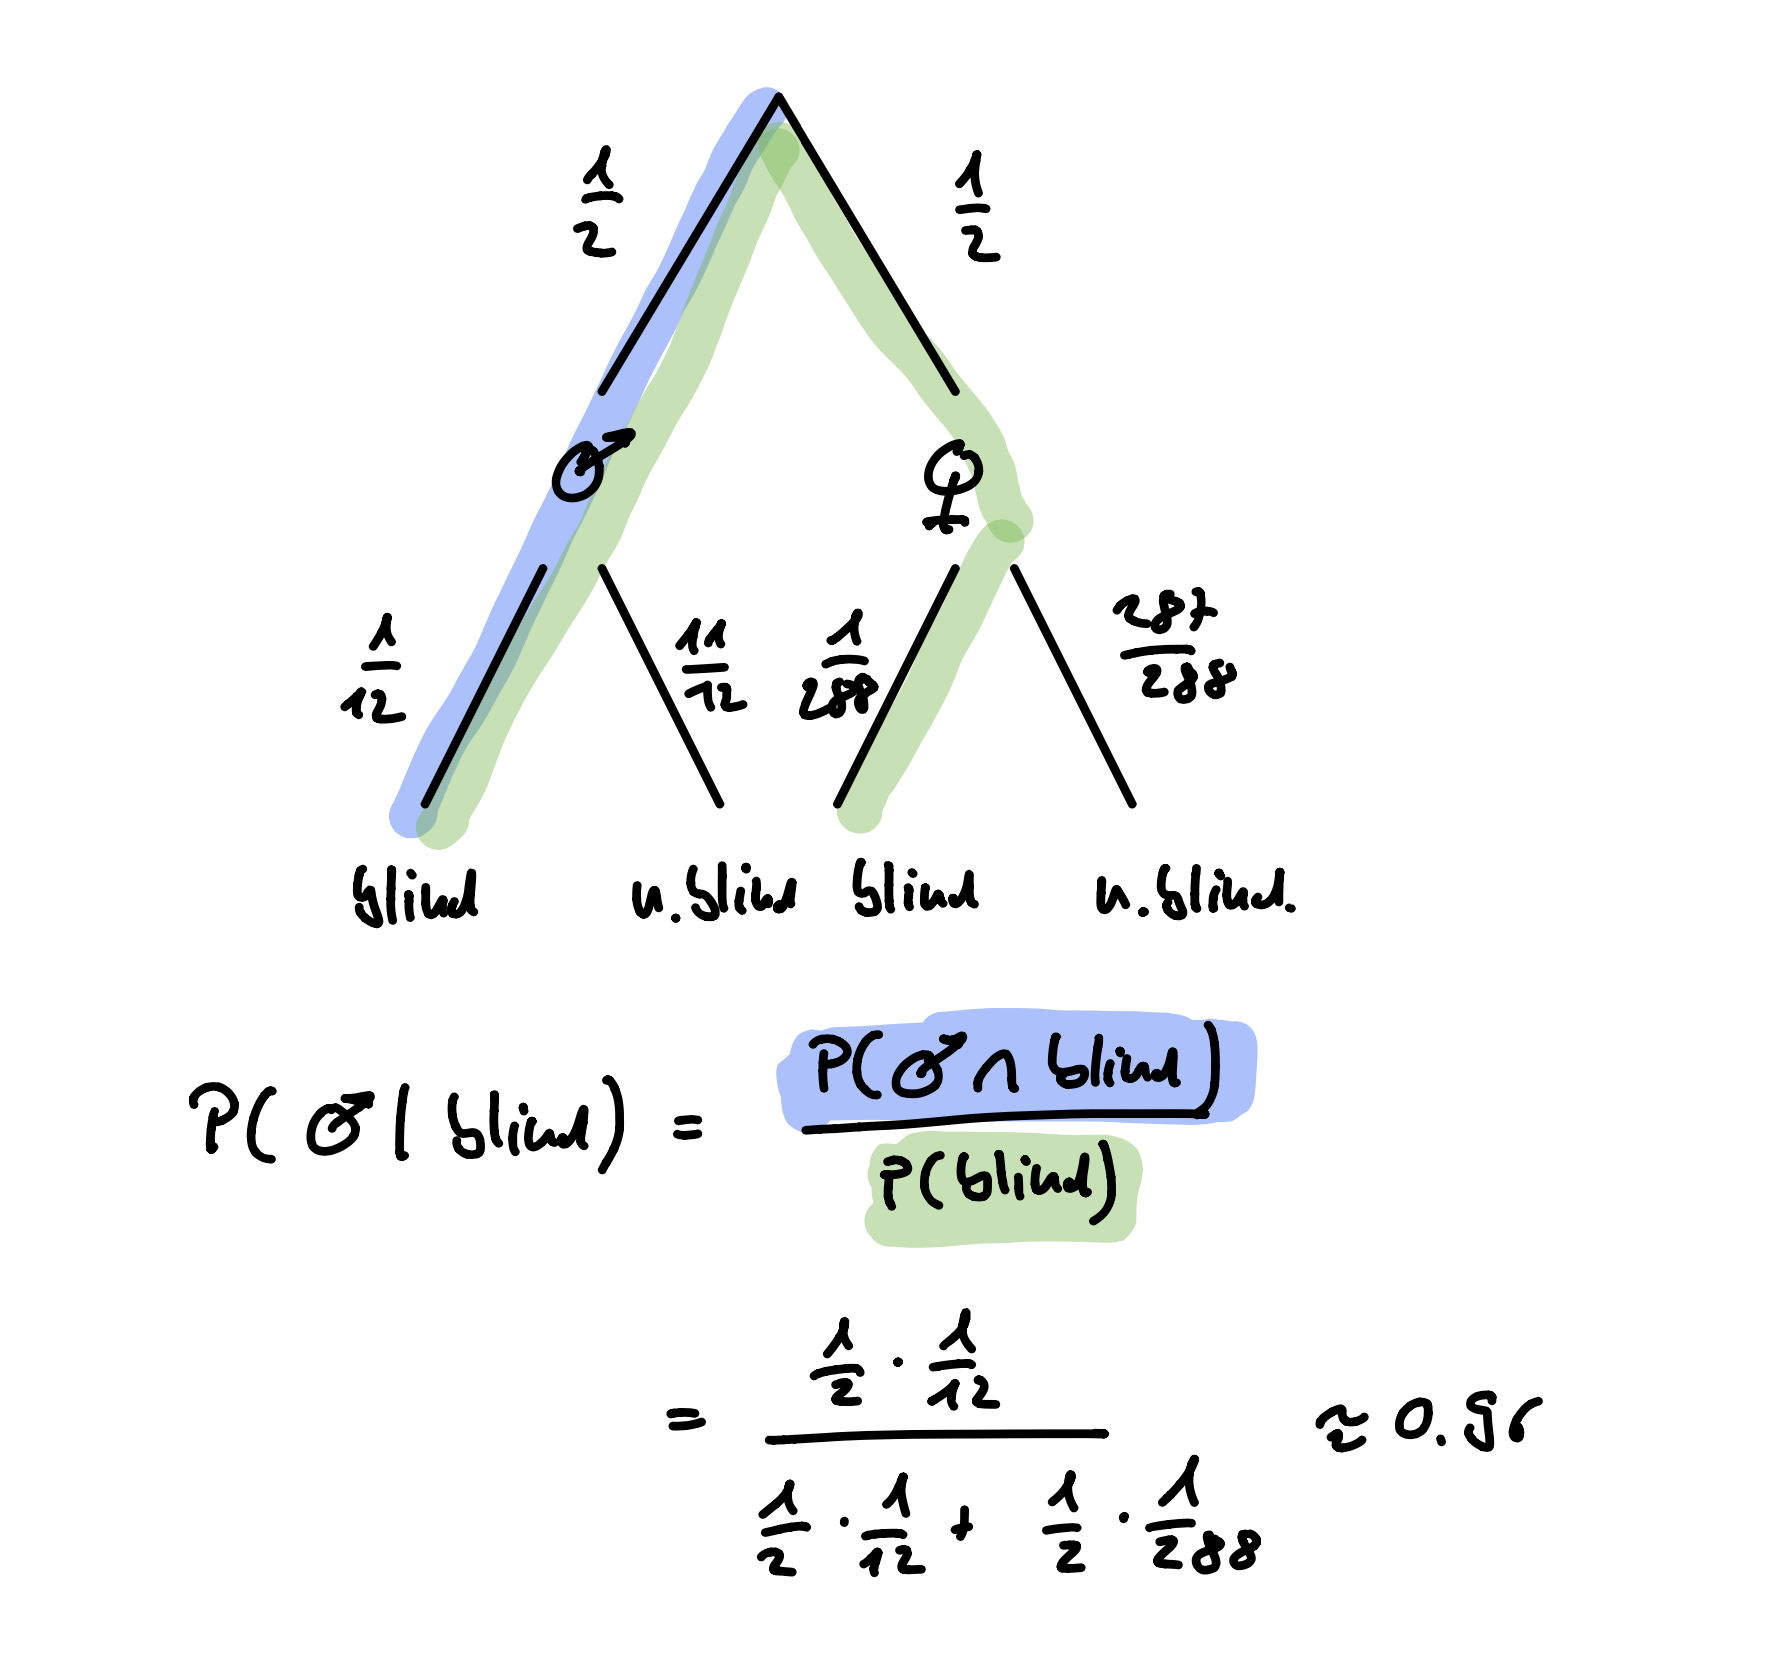 1/2 1/2
♂ ♀
1/12 11/12 1/288 287/288
blind n.blind blind n.blind.
P(♂ | blind) = P(♂ ∩ blind) / P(blind)
= (1/2 · 1/12) / (1/2 · 1/12 + 1/2 · 1/288) ≈ 0.96